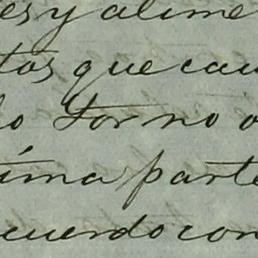 es y alime
tos que cau
o Por no o
ima parte
cuerdo con